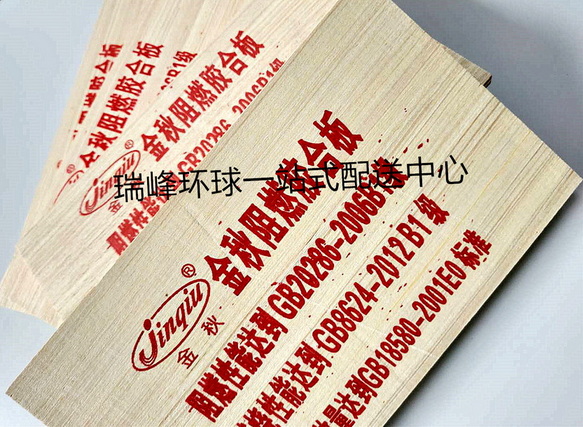 金秋阻燃胶合板
阻燃性能达到GB20286-2006B1级
金秋阻燃胶合板
GB20286-2006B1级
Jinqiu®
瑞峰环球一站式配送中心
金秋阻燃胶合板
Jinqiu®
金秋
阻燃性能达到GB20286-2006B
性能达到GB8624-2012 B1级
量达到GB18580-2001E0标准